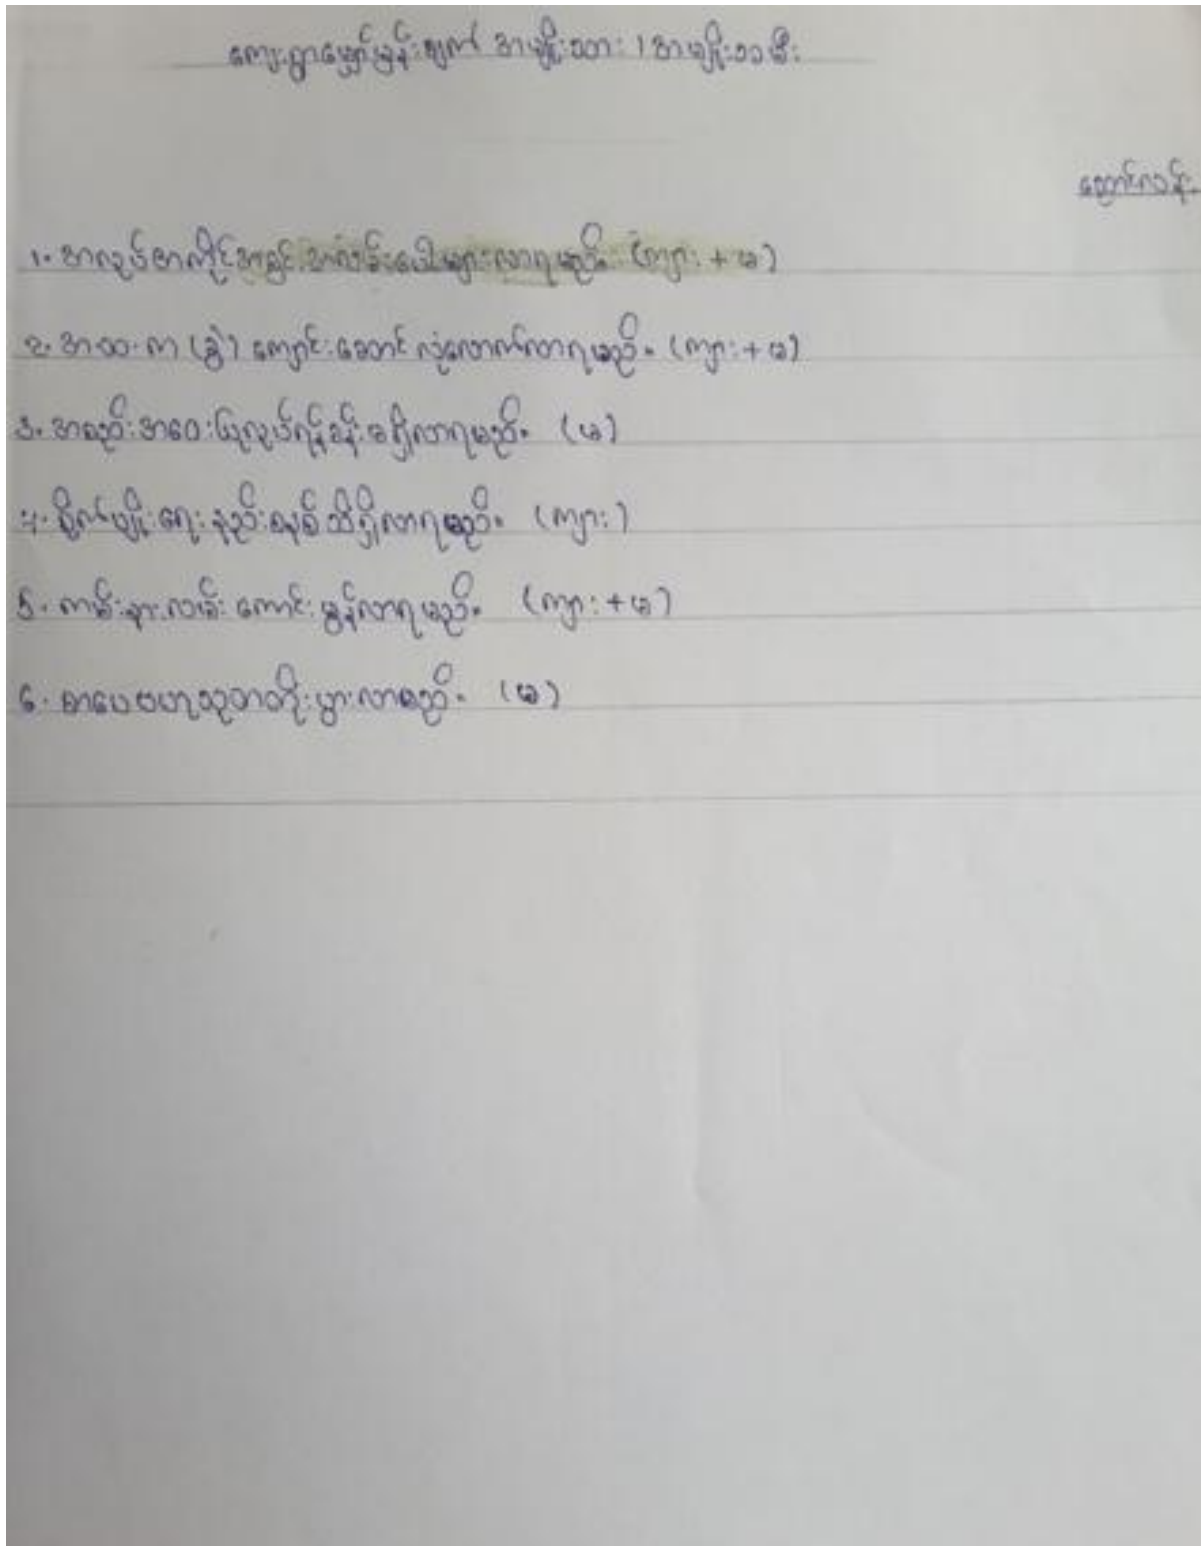 ကျေးရွာမျှော်မှန်းချက် အမျိုးသား / အမျိုးသမီး
ညောင်လန့်
၁. အလုပ်အကိုင်အခွင့်အလမ်းပေါများလာရမည်။ (ကျား + မ)
၂. အ.ထ.က (ခွဲ) ကျောင်းဆောင် လုံလောက်လာရမည်။ (ကျား + မ)
၃. အစည်းအဝေးပြုလုပ်ရန်ခန်းမရှိလာရမည်။ (မ)
၄. စိုက်ပျိုးရေးနည်းစနစ်သိရှိလာရမည်။ (ကျား)
၅. ကမ်းနားလမ်း ကောင်းမွန်လာရမည်။ (ကျား + မ)
၆. စာပေဗဟုသုတတိုးပွားလာမည်။ (မ)